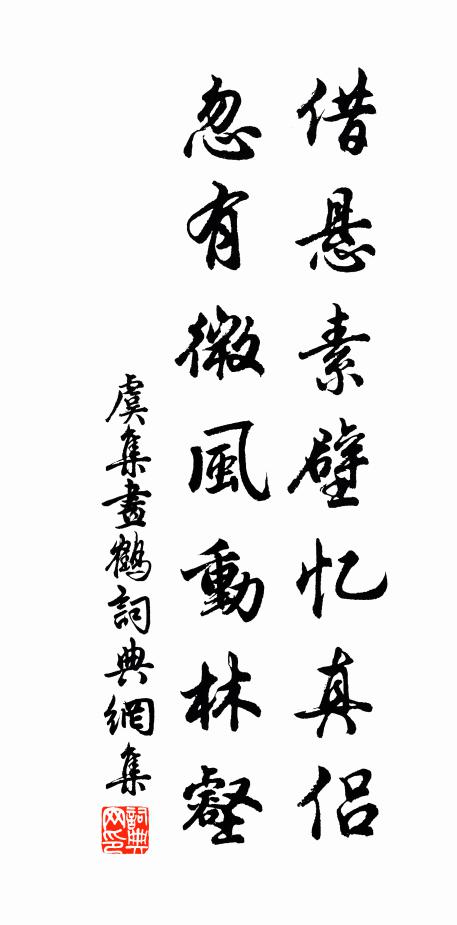 借悬素壁忆真侣
忽有微風動林壑
虞集畫鶴詞典網集
詞典网印